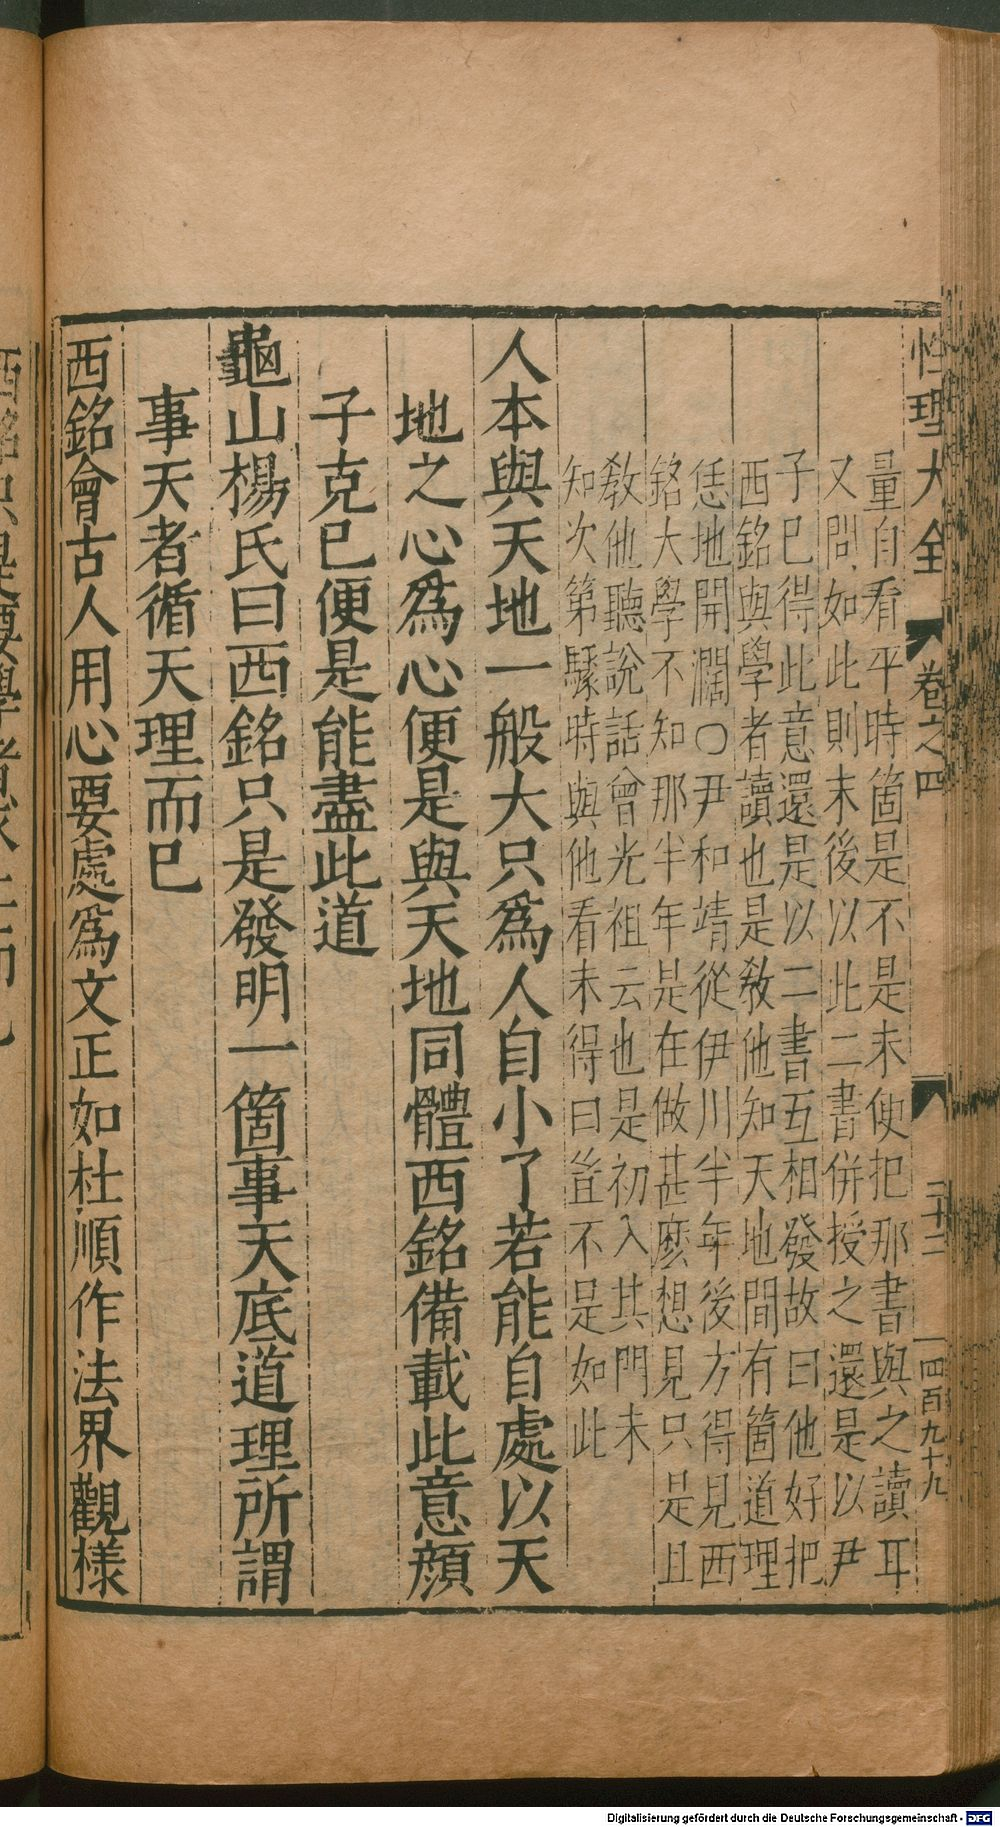 性理大全 卷之四 二十二 四百九十九
量自看平時箇是不是未使把那書與之讀耳
又問如此則末後以此二書併授之還是以尹
子已得此意還是以二書互相發故曰他好把
西銘與學者讀也是教他知天地間有箇道理
恁地開濶○尹和靖從伊川半年後方得見西
銘大學不知那半年是在做甚麽想見只是且
教他聽說話曾光祖云也是初入其門未
知次第驟時與他看未得曰豈不是如此
人本與天地一般大只爲人自小了若能自處以天
地之心爲心便是與天地同體西銘備載此意顔
子克已便是能盡此道
龜山楊氏曰西銘只是發明一箇事天底道理所謂
事天者循天理而已
西銘會古人用心要處爲文正如杜順作法界觀樣
Digitalisierung gefördert durch die Deutsche Forschungsgemeinschaft - DFG